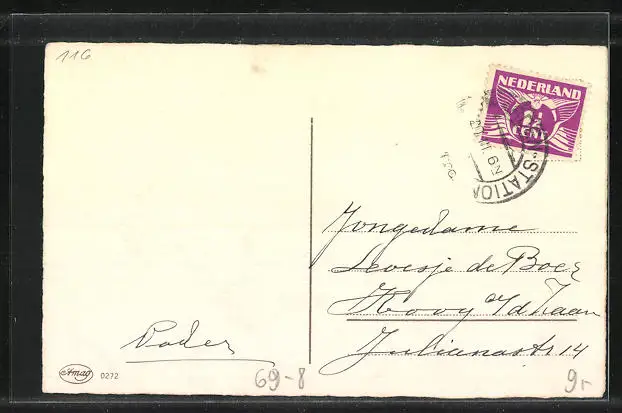 116
NEDERLAND
2½
CENT
STATION
Jongedame
de Boer
Koog a/d Zaan
Julianastr 14
Vader
Amag 0272
69-8
9,-